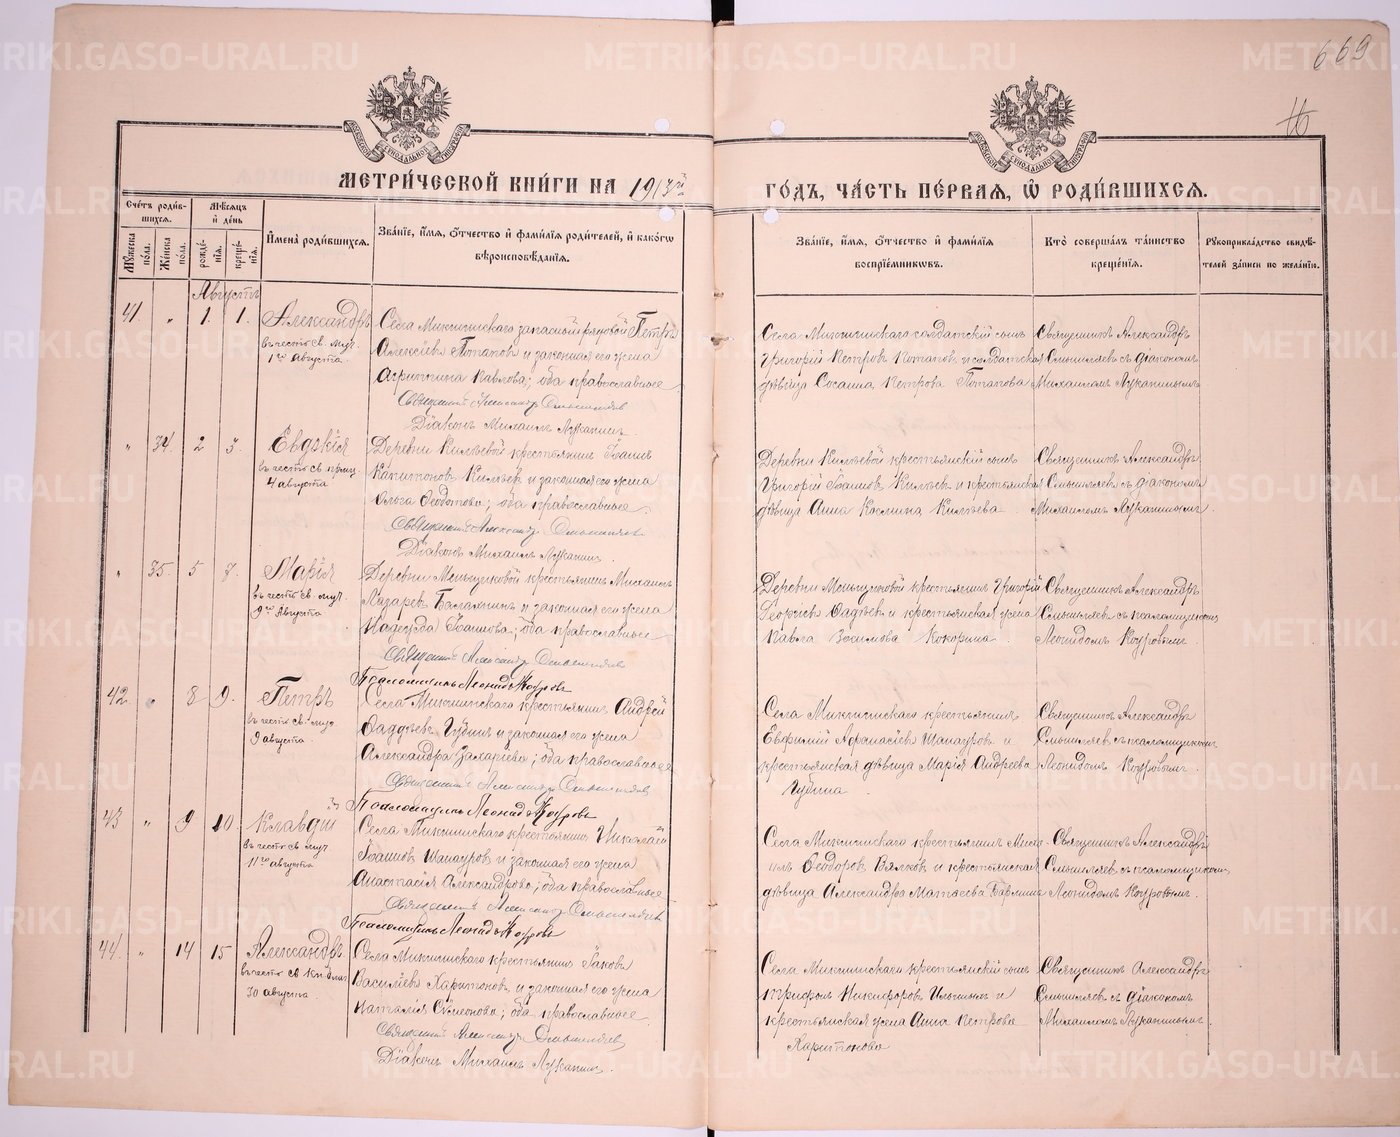 669
16
МЕТРИ́ЧЕСКОЙ КНИ́ГИ НА 1913й
ГО́ДЪ, ЧА́СТЬ ПЕ́РВАЯ, Ѿ РОДИ́ВШИХСЯ.
Сче́тъ роди́вшихся.
Мѣ́сяцъ и де́нь
Му́жеска по́ла.
Же́нска по́ла.
рожде́нїя.
креще́нїя.
И҆мена̀ роди́вшихся.
Зва́нїе, и҆́мя, ѻ҆́тчество и҆ фами́лїя роди́телей, и҆ како́гѡ вѣроисповѣ́данїя.
Зва́нїе, и҆́мя, ѻ҆́тчество и҆ фами́лїя воспрїе́мникѡвъ.
Кто̀ соверша́лъ та́инство креще́нїя.
Рꙋкоприкла́дство свидѣ́телей за́писи по жела́нїю.
Августъ
41. " 1. 1. Александръ
въ честь св. муч.
1го Августа.
Села Микшинскаго запасный рядовой Петръ
Алексіевъ Потаповъ и законная его жена
Агриппина Павлова; оба православные
Священникъ Александръ Смышляевъ
Діаконъ Михаилъ Луканинъ.
Села Микшинскаго солдатскій сынъ
Григорій Петровъ Потаповъ и солдатская
дѣвица Сосанна Петрова Потапова
Священникъ Александръ
Смышляевъ съ діакономъ
Михаиломъ Луканинымъ
" 34. 2 3. Евдокія
въ честь св. прмц.
4 августа
Деревни Килѣевой крестьянинъ Іоаннъ
Капитоновъ Килѣевъ и законная его жена
Ольга Ѳеодотова; оба православные.
Священникъ Александръ Смышляевъ
Діаконъ Михаилъ Луканинъ
Деревни Килѣевой крестьянскій сынъ
Григорій Іоанновъ Килѣевъ и крестьянская
дѣвица Анна Космина Килѣева
Священникъ Александръ
Смышляевъ съ діакономъ
Михаиломъ Луканинымъ.
" 35. 5 7. Марія
въ честь св. муч.
9го Августа
Деревни Меньщиковой крестьянинъ Михаилъ
Лазаревъ Балакинъ и законная его жена
Надежда Іоаннова; оба православные
Священникъ Александръ Смышляевъ
Псаломщикъ Леонидъ Коуровъ
Деревни Меньщиковой крестьянинъ Григорій
Георгіевъ Ѳадѣевъ и крестьянская жена
Павла Зосимова Кокорина
Священникъ Александръ
Смышляевъ съ псаломщикомъ
Леонидомъ Коуровымъ.
42. " 8 9. Петръ
въ честь св. муч.
9 августа
Села Микшинскаго крестьянинъ Андрей
Ѳаддѣевъ Губинъ и законная его жена
Александра Захаріева; оба православные
Священникъ Александръ Смышляевъ
Псаломщикъ Леонидъ Коуровъ
Села Микшинскаго крестьянинъ
Евфимій Афанасіевъ Шанауровъ и
крестьянская дѣвица Марія Андреева
Губина
Священникъ Александръ
Смышляевъ съ псаломщикомъ
Леонидомъ Коуровымъ.
43 " 9 10. Клавдій
въ честь св. муч.
11го августа
Села Микшинскаго крестьянинъ Николай
Іоанновъ Шанауровъ и законная его жена
Анастасія Александрова; оба православные
Священникъ Александръ Смышляевъ
Псаломщикъ Леонидъ Коуровъ
Села Микшинскаго крестьянинъ
Ѳеодоровъ Вялковъ и крестьянская
дѣвица Александра Матѳеева
Священникъ Александръ
Смышляевъ съ псаломщикомъ
Леонидомъ Коуровымъ.
44. " 14 15 Александръ
въ честь св. кн.
30 августа.
Села Микшинскаго крестьянинъ Іаковъ
Василіевъ Харитоновъ и законная его жена
Наталія Сѵмеонова; оба православные.
Священникъ Александръ Смышляевъ
Діаконъ Михаилъ Луканинъ.
Села Микшинскаго крестьянскій сынъ
Трифонъ Никифоровъ Ильиныхъ и
крестьянская жена Анна Петрова
Харитонова
Священникъ Александръ
Смышляевъ съ діакономъ
Михаиломъ Луканинымъ
METRIKI.GASO-URAL.RU